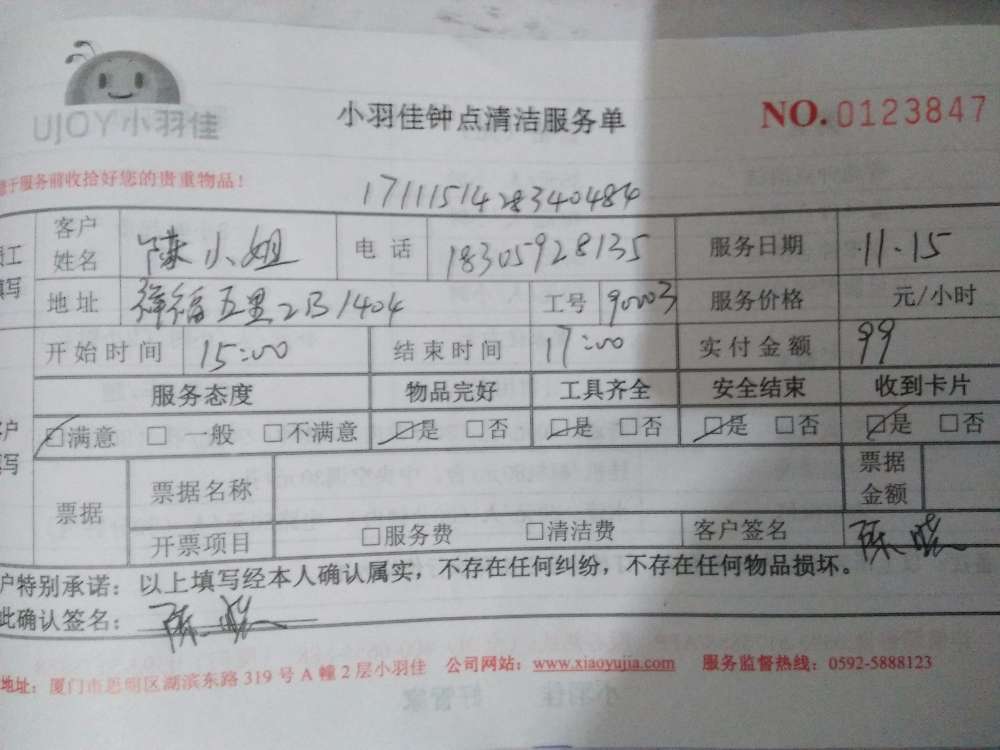 UJOY小羽佳
小羽佳钟点清洁服务单
NO.0123847
于服务前收拾好您的贵重物品！
1711151428340484
客户姓名 陈小姐 电话 18305928135 服务日期 11.15
地址 祥福五里2B1404 工号 90003 服务价格 元/小时
开始时间 15:00 结束时间 17:00 实付金额 99
服务态度 物品完好 工具齐全 安全结束 收到卡片
□满意 □一般 □不满意 □是 □否 □是 □否 □是 □否 □是 □否
票据 票据名称 票据金额
开票项目 □服务费 □清洁费 客户签名
户特别承诺：以上填写经本人确认属实，不存在任何纠纷，不存在任何物品损坏。
此确认签名：
地址：厦门市思明区湖滨东路319号A幢2层小羽佳 公司网站：www.xiaoyujia.com 服务监督热线：0592-5888123